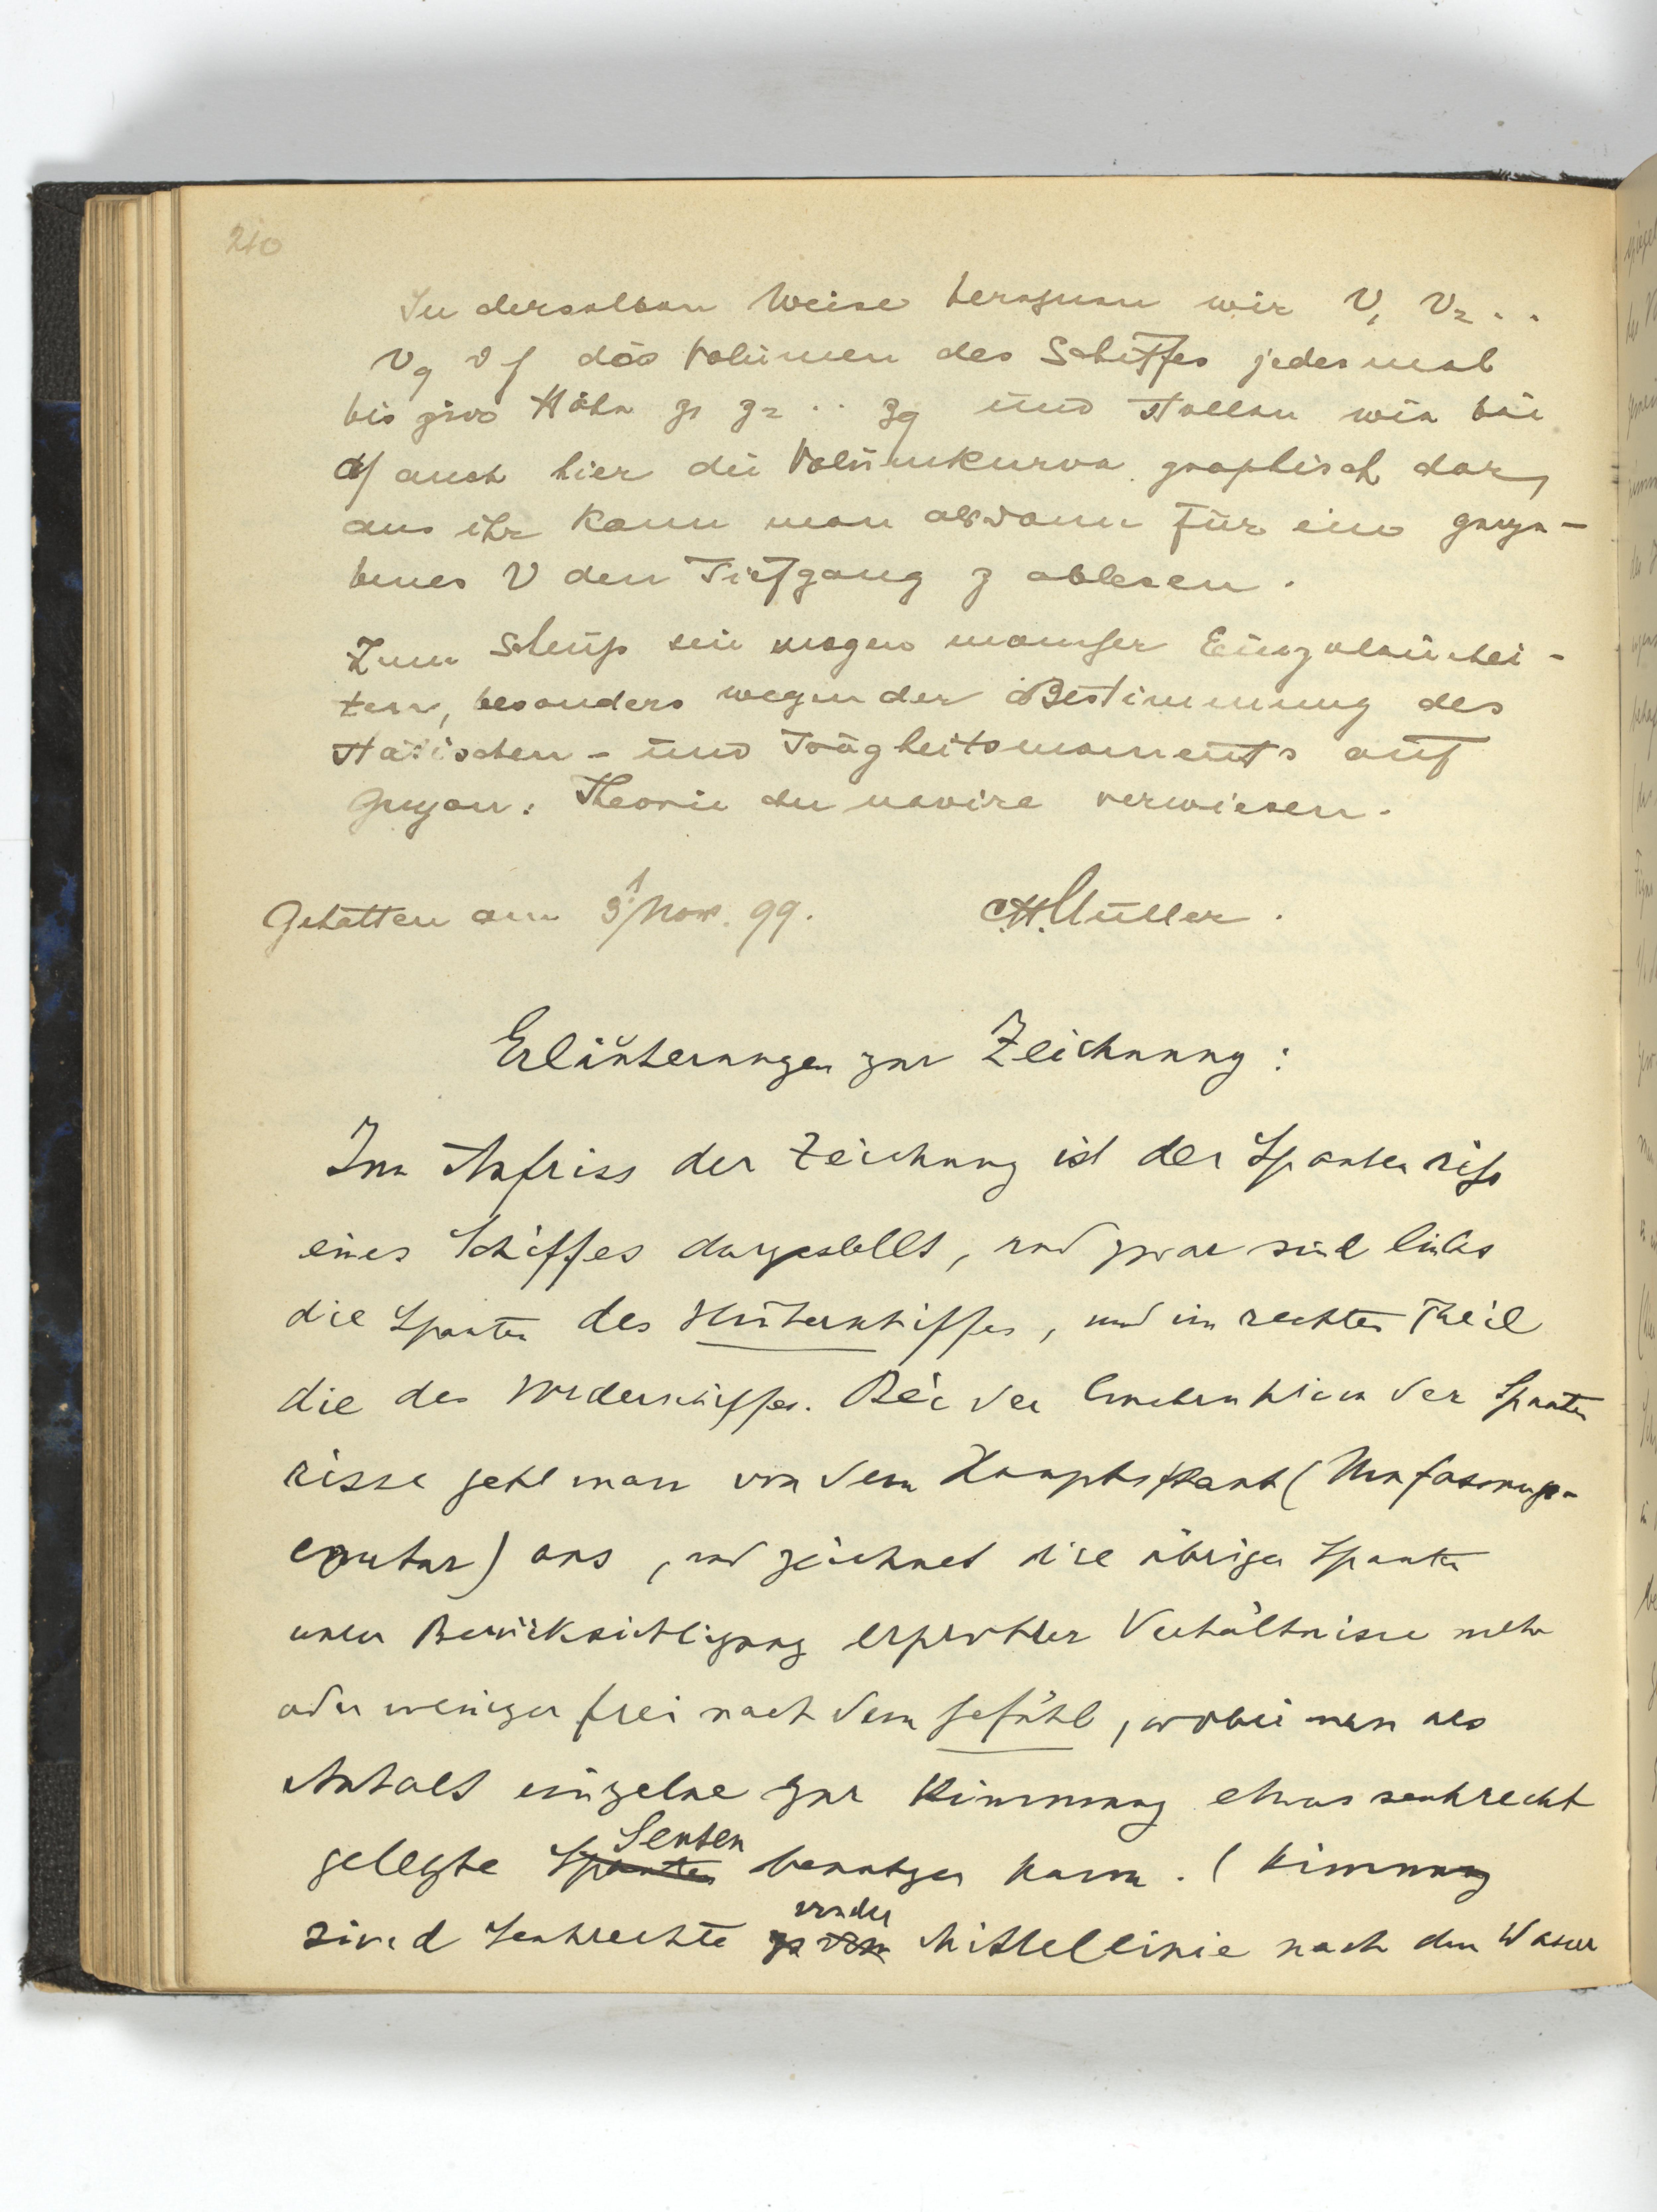 210
In derselben Weise berechnen wir V₁ V₂ . .
V₉ d. h. das Volumen des Schiffes jedesmal
bis zur Höhe z₁ z₂ . . z₉ und stellen wie bei
auch hier die Volumkurve graphisch dar,
aus ihr kann man alsdann für ein gege-
benes V den Tiefgang z ablesen.
Zum Schluß sei wegen mancher Einzelheinhei-
ten, besonders wegen der Bestimmung des
statischen - und Trägheitsmoments auf
Guyou: Theorie du navire verwiesen.
Gehalten am Nov. 99. C.H. Müller.
Erläuterungen zur Zeichnung:
Im Aufriss der Zeichnung ist der Spantenriß
eines Schiffes dargestellt, und zwar sind links
die Spanten des Hinterschiffes, und im rechten Theil
die des Vorderschiffes. Bei der Construktion der Spanten
risse geht man von dem Hauptspant (Umfassungs-
contur) aus, und zeichnet die übrigen Spanten
unter Berücksichtigung erprobter Verhältnisse mehr
oder weniger frei nach dem Gefühl, wobei man als
Anhalt einzelne zur Kimmung etwas senkrecht
gelegte Spanten Senten benutzen kann. (Kimmung
sind Senkrechte von der Mittellinie nach dem Wasser